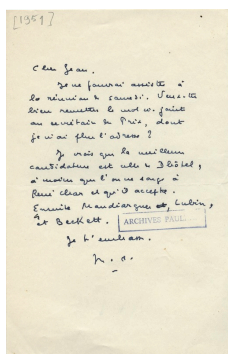 [1951]
Cher Jean.
Je ne pourrai assister à
la réunion de samedi. Veux-tu
bien remettre le mot ci-joint
au secrétaire du Prix, dont
je n'ai plus l'adresse ?
Je crois que la meilleure
candidature est celle de Dhôtel,
à moins que l'on ne songe à
René Char et qu'il accepte.
Ensuite Mandiargues, Lubin,
et Beckett.
ARCHIVES PAUL
Je t'embrasse.